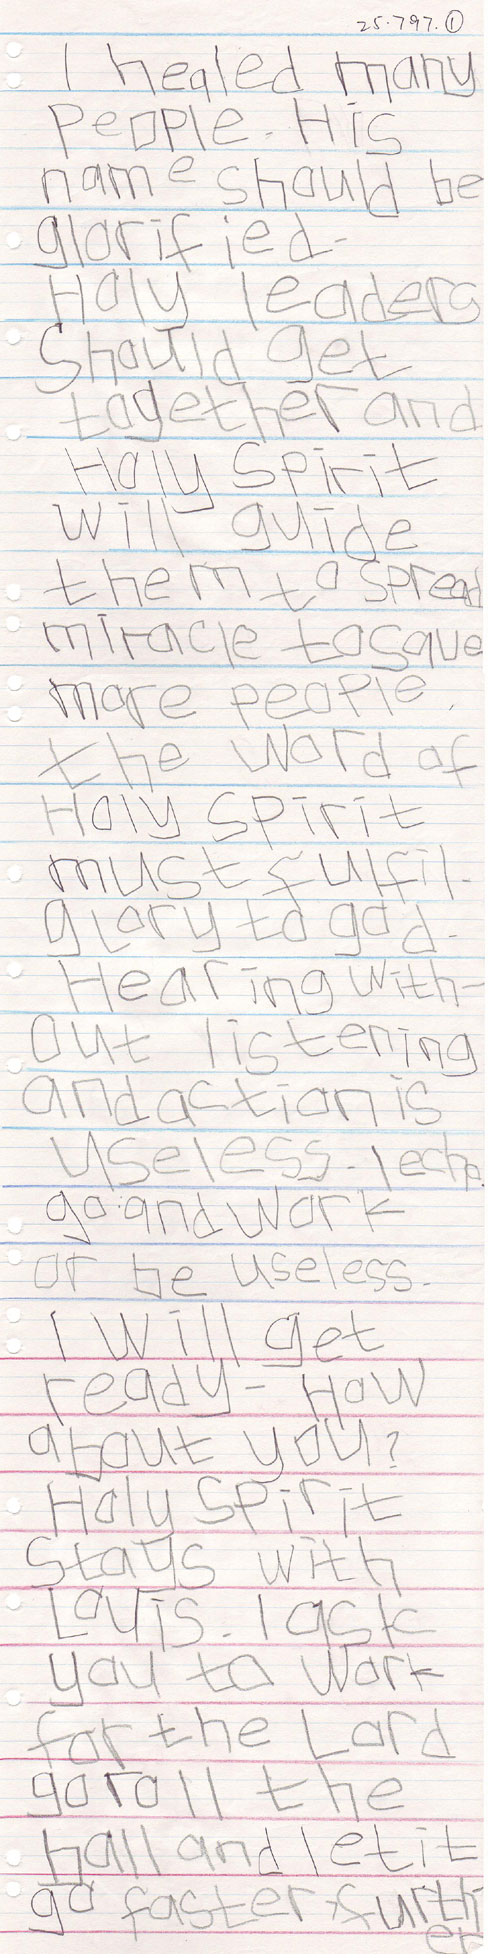 25.7.97. ①
I healed many
People. His
name should be
glorified-
Holy leaders
should get
together and
Holy Spirit
will guide
them to spread
miracle to save
more people.
the word of
Holy Spirit
must fulfil.
glory to god-
Hearing with-
out listening
and action is
useless. I echo.
go and work
or be useless.
I will get
ready- How
about you?
Holy Spirit
stays with
Louis. I ask
you to work
for the Lord
go roll the
ball and let it
go faster, furth
er